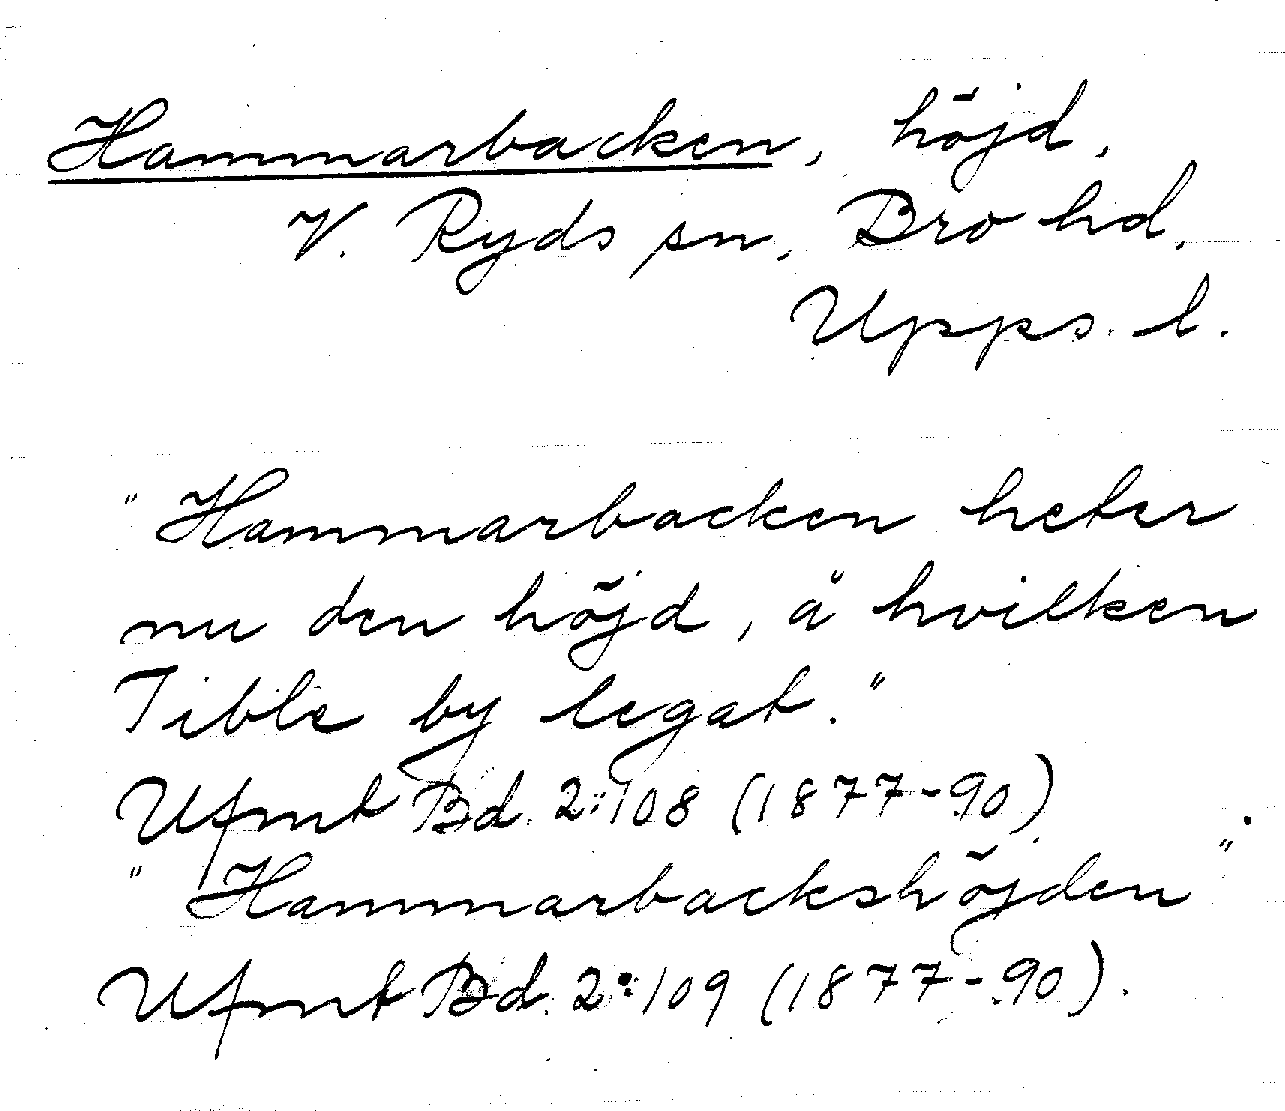 Hammarbacken, höjd,
V. Ryds sn, Bro hd,
Upps. l.
"Hammarbacken heter
nu den höjd, å hvilken
Tible by legat."
Ufmt Bd. 2:108 (1877-90)
"Hammarbackshöjden"
Ufmt Bd. 2:109 (1877-90).